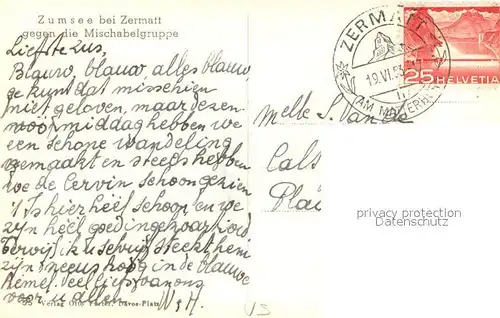 Zumsee bei Zermatt
gegen die Mischabelgruppe
Liefste zus,
Blauw, blauw, alles blauw
ge kunt dat misschien
niet geloven, maar dezen
voormiddag hebben we
een schone wandeling
gemaakt en steeds hebben
we de Cervin schoon gezien
't Is hier heel schoon en we
zijn heel goed ingekwartierd
Terwijl ik u schrijf steekt heni
zijn neus hoog in de blauwe
hemel. Veel liefs vanons
voor u allen. N&H.
Verlag Otto Furter, Davos-Platz
ZERMATT
19.VI.53
AM MATTERHORN
25 HELVETIA
Melle S. Van de
Cals
Plai
privacy protection
Datenschutz